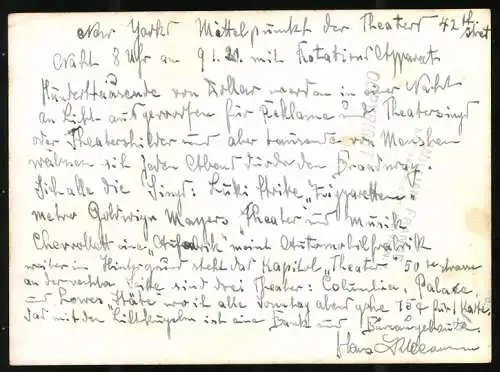 New Yorks Mittelpunkt der Theaters 42th street
Nachts 8 Uhr am 9 1. 20. mit Rotations Apparat
Hunderttausende von Dollar werden in einer Nacht
an Licht ausgeworfen für Reklame und Theatersings
oder Theaterschilder und aber tausende von Menschen
wälzen sich jeden Abend durch den Broadway.
Sieh alle die Sings: Luki Strike „
metro Goldwign Mayers Theater und Musik
Chevrollett eine „ meint Automobilfabrik
weiter im Hintergrund steht das Kapitol „Theater 50te strasse
an der rechten Seite sind drei Theater: Columbia, Palace
und Loews State wo ich alle Sonntag abend gehe 75¢ für 1 Karte.
das mit den Lichtkugeln ist eine Bank und Bürogebäude.
Hans
COPYRIGHT